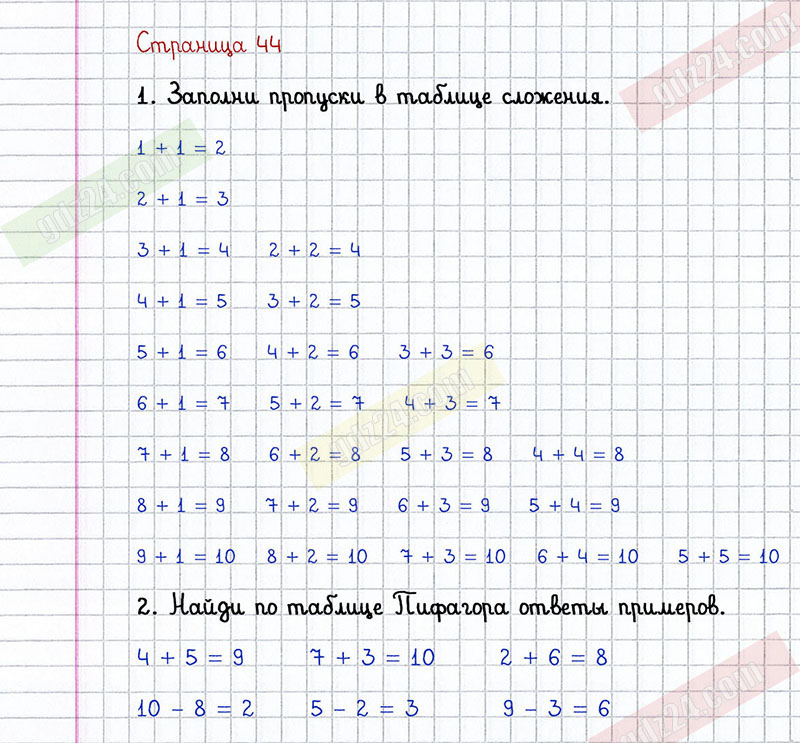 Страница 44
gdz24.com
1. Заполни пропуски в таблице сложения.
1 + 1 = 2
gdz24.com
2 + 1 = 3
3 + 1 = 4 2 + 2 = 4
4 + 1 = 5 3 + 2 = 5
5 + 1 = 6 4 + 2 = 6 3 + 3 = 6
6 + 1 = 7 5 + 2 = 7 4 + 3 = 7
gdz24.com
7 + 1 = 8 6 + 2 = 8 5 + 3 = 8 4 + 4 = 8
8 + 1 = 9 7 + 2 = 9 6 + 3 = 9 5 + 4 = 9
9 + 1 = 10 8 + 2 = 10 7 + 3 = 10 6 + 4 = 10 5 + 5 = 10
2. Найди по таблице Пифагора ответы примеров.
4 + 5 = 9 7 + 3 = 10 2 + 6 = 8
10 - 8 = 2 5 - 2 = 3 9 - 3 = 6
gdz24.com